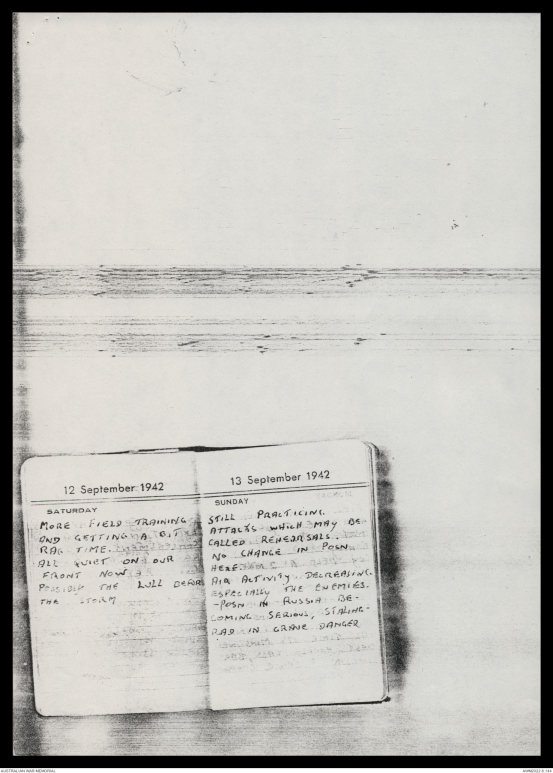 12 September 1942
SATURDAY
MORE FIELD TRAINING
AND GETTING A BIT
RAG TIME.
ALL QUIET ON OUR
FRONT NOW.
POSSIBLY THE LULL BEFOR
THE STORM
13 September 1942
SUNDAY
STILL PRACTICING.
ATTACKS WHICH MAY BE
CALLED REHEARSALS.
NO CHANGE IN POSN
HERE.
AIR ACTIVITY DECREASING.
ESPECIALLY THE ENEMIES.
-POSN IN RUSSIA BE-
COMING SERIOUS, STALING-
RAD IN GRAVE DANGER
AUSTRALIAN WAR MEMORIAL